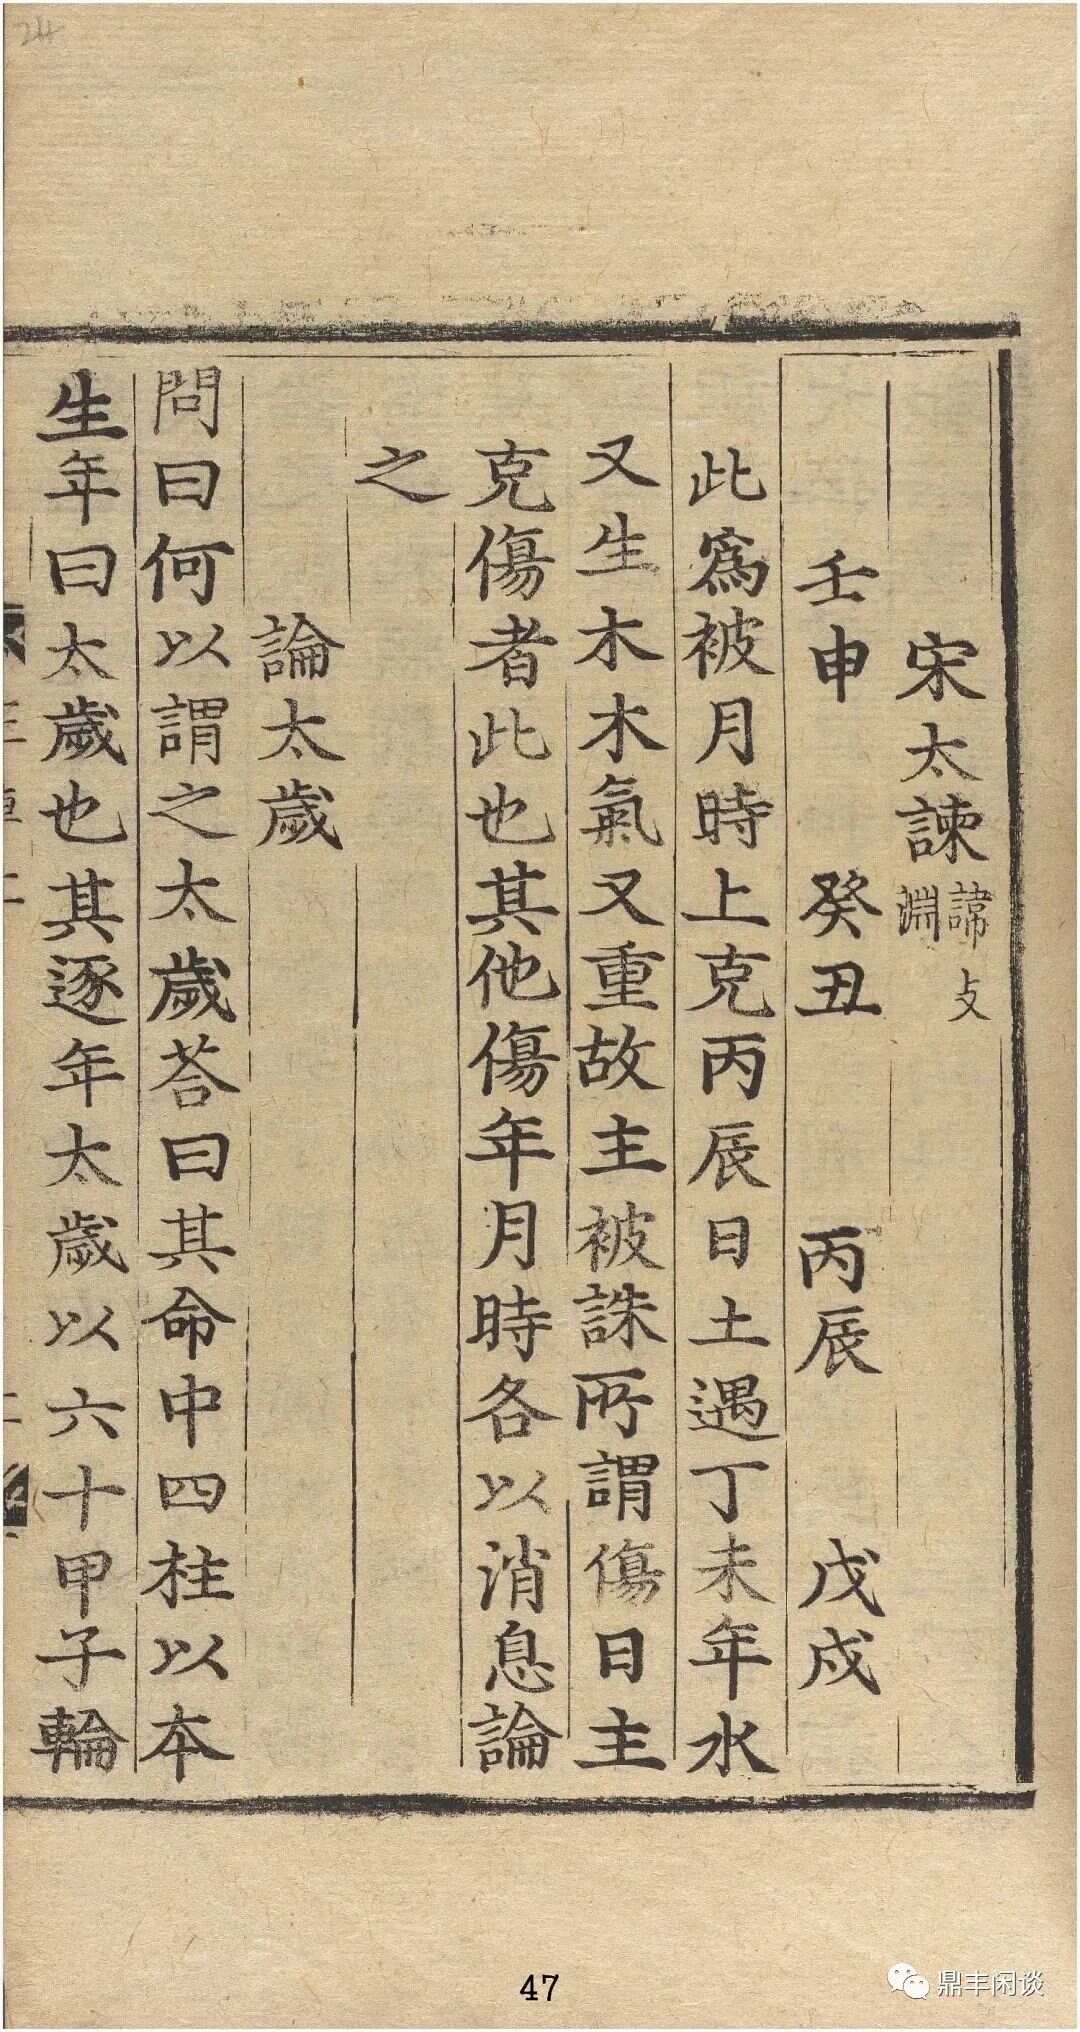 宋太諫諱淵
壬申　癸丑　丙辰　戊戌
此爲被月時上克丙辰日土遇丁未年水
又生木木氣又重故主被誅所謂傷日主
克傷者此也其他傷年月時各以消息論
之
論太歲
問曰何以謂之太歲荅曰其命中四柱以本
生年曰太歲也其逐年太歲以六十甲子輪
47
鼎丰闲谈